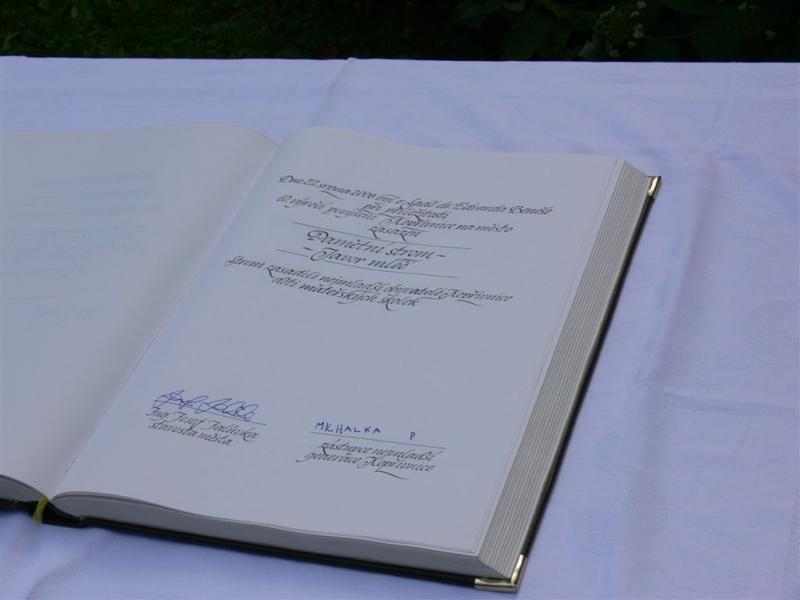 Dne 22. srpna 2008 byl v Sadě dr. Edvarda Beneše
při příležitosti
60. výročí povýšení Kopřivnice na město
zasazen
Památní strom –
– Javor mléč
Strom zasadili nejmladší obyvatelé Kopřivnice
děti mateřských školek
Ing. Josef Jalůvka
starosta města
MICHALKA P.
zástupce nejmladší
generace Kopřivnice